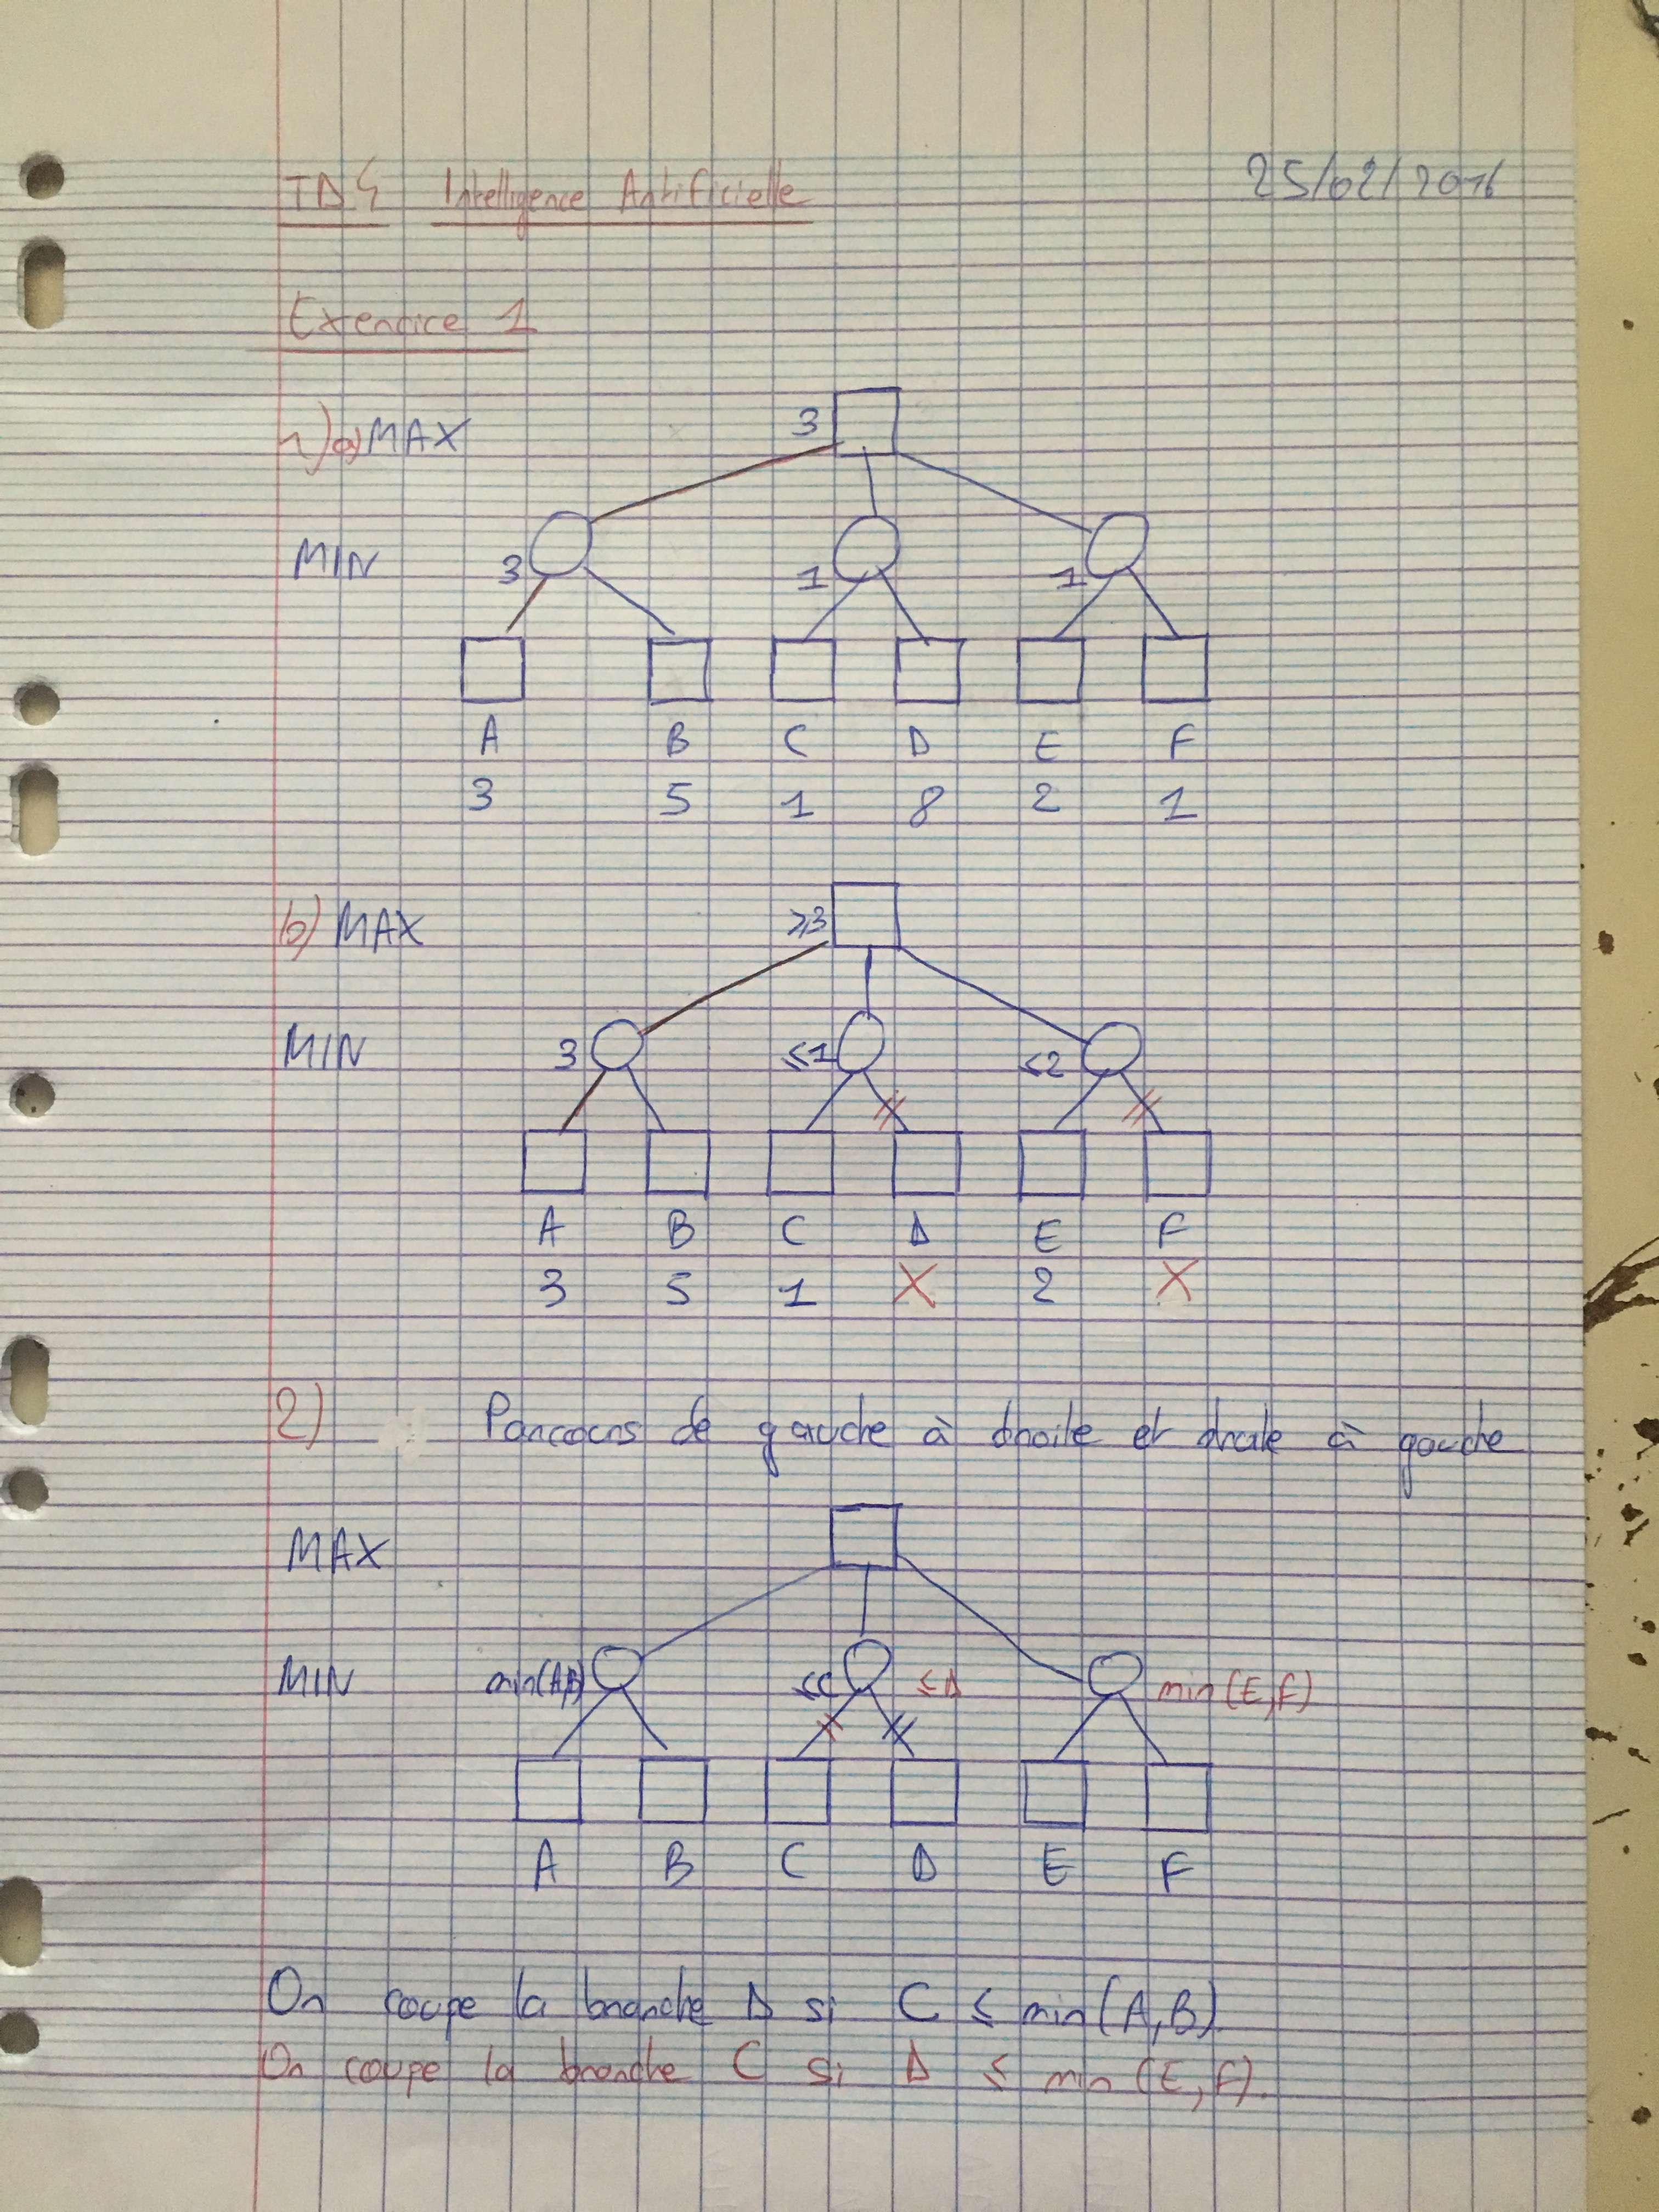 TD4 Intelligence Artificielle 25/02/2016
Exercice 1
1) a) MAX 3
MIN 3 1 1
A B C D E F
3 5 1 8 2 1
b) MAX ≥3
MIN 3 ≤1 ≤2
A B C D E F
3 5 1 X 2 X
2) Parcours de gauche à droite et droite à gauche
MAX
MIN min(A,B) ≤C ≤D min(E,F)
A B C D E F
On coupe la branche D si C ≤ min(A,B)
On coupe la branche C si D ≤ min(E,F).